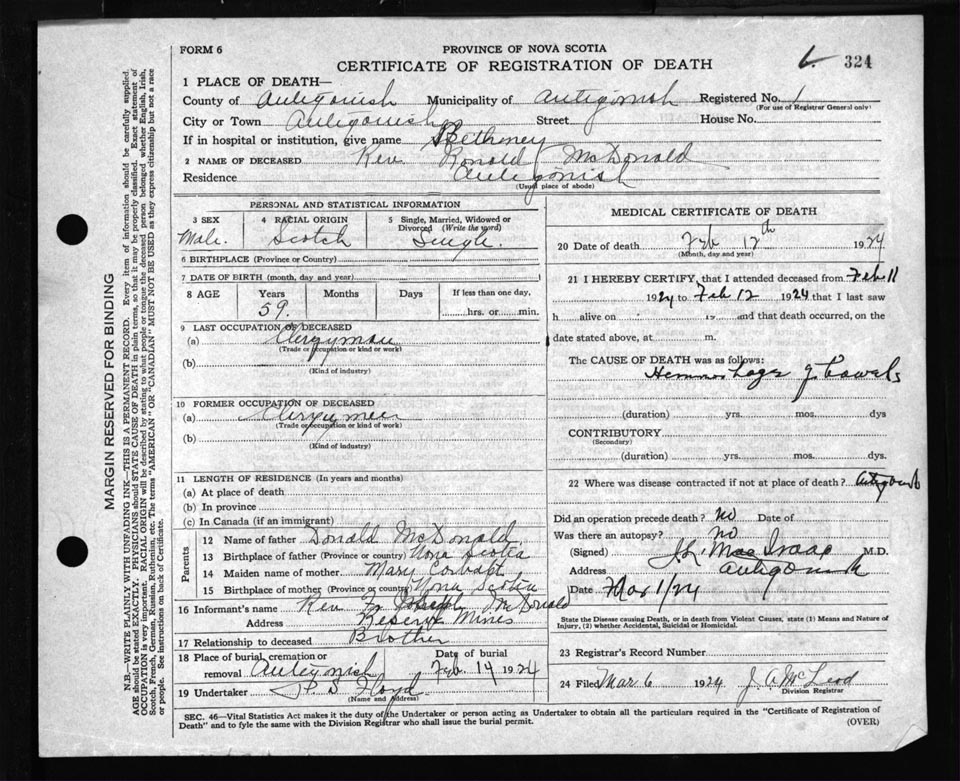 FORM 6
PROVINCE OF NOVA SCOTIA
CERTIFICATE OF REGISTRATION OF DEATH
324
1 PLACE OF DEATH—
County of Antigonish Municipality of Antigonish Registered No. 1
(For use of Registrar General only)
City or Town Antigonish Street House No.
If in hospital or institution, give name Bethaney
2 NAME OF DECEASED Rev. Ronald McDonald
Residence Antigonish
(Usual place of abode)
PERSONAL AND STATISTICAL INFORMATION
3 SEX Male.
4 RACIAL ORIGIN Scotch
5 Single, Married, Widowed or Divorced (Write the word) Single.
6 BIRTHPLACE (Province or Country)
7 DATE OF BIRTH (month, day and year)
8 AGE Years 59. Months Days If less than one day, hrs. or min.
9 LAST OCCUPATION OF DECEASED
(a) Clergyman
(Trade or occupation or kind or work)
(b)
(Kind of industry)
10 FORMER OCCUPATION OF DECEASED
(a) Clergyman
(Trade or occupation or kind or work)
(b)
(Kind of industry)
11 LENGTH OF RESIDENCE (In years and months)
(a) At place of death
(b) In province
(c) In Canada (if an immigrant)
Parents
12 Name of father Donald McDonald
13 Birthplace of father (Province or country) Nova Scotia
14 Maiden name of mother Mary
15 Birthplace of mother (Province or country) Nova Scotia
16 Informant's name Rev. Fr Joseph McDonald
Address Reserve Mines
17 Relationship to deceased Brother
18 Place of burial, cremation or removal Antigonish Date of burial Feb 14 1924
19 Undertaker P.S. Floyd.
(Name and Address)
MEDICAL CERTIFICATE OF DEATH
20 Date of death Feb 12th 1924
(Month, day and year)
21 I HEREBY CERTIFY, that I attended deceased from Feb 11
1924 to Feb 12 1924 that I last saw
h alive on 19 and that death occurred, on the
date stated above, at m.
The CAUSE OF DEATH was as follows:
Hemorrhage of bowels
(duration) yrs. mos. dys
CONTRIBUTORY
(Secondary)
(duration) yrs. mos. dys.
22 Where was disease contracted if not at place of death? Antigonish
Did an operation precede death? No Date of
Was there an autopsy? no
(Signed) J.L. MacIsaac M.D.
Address Antigonish
Date Mar 1/24
State the Disease causing Death, or in death from Violent Causes, state (1) Means and Nature of Injury, (2) whether Accidental, Suicidal or Homicidal.
23 Registrar's Record Number
24 Filed Mar 6 1924 J A McLeod
Division Registrar
SEC. 46—Vital Statistics Act makes it the duty of the Undertaker or person acting as Undertaker to obtain all the particulars required in the "Certificate of Registration of
Death" and to fyle the same with the Division Registrar who shall issue the burial permit.
(OVER)
MARGIN RESERVED FOR BINDING
N.B.—WRITE PLAINLY WITH UNFADING INK—THIS IS A PERMANENT RECORD. Every item of information should be carefully supplied.
AGE should be stated EXACTLY. PHYSICIANS should STATE CAUSE OF DEATH in plain terms, so that it may be properly classified. Exact statement of
OCCUPATION is very important. RACIAL ORIGIN will be described by stating to what people or tongue the deceased person belonged whether English, Irish,
Scotch, French, German, Russian, Ruthenian, etc. The terms "AMERICAN" OR "CANADIAN" MUST NOT BE USED as they express citizenship but not a race
or people. See instructions on back of Certificate.